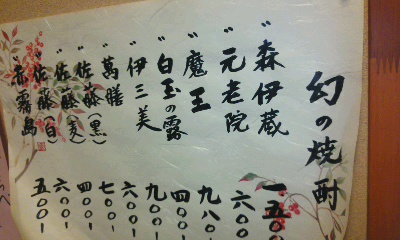 幻の焼酎
〃森伊蔵 一五〇〇
〃元老院 六〇〇
〃魔王 九八〇-
〃白玉の露 四〇〇-
〃伊三美 九〇〇-
〃萬膳 六〇〇-
〃佐藤(黒) 七〇〇-
〃佐藤(麦) 四〇〇-
〃佐藤(白) 六〇〇-
〃赤霧島 五〇〇-